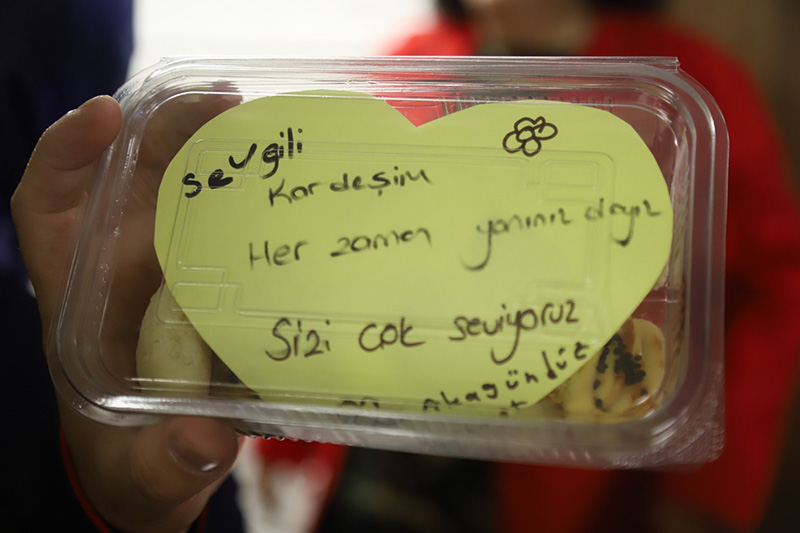 sevgili
Kardeşim
Her zaman yanınızdayız
Sizi çok seviyoruz